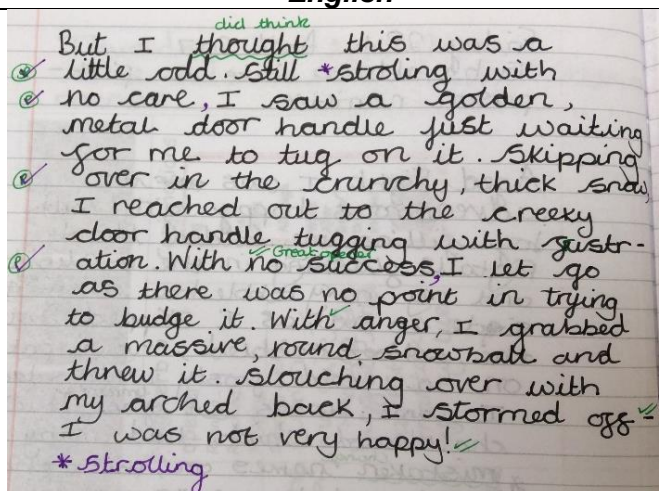 English
did think
But I thought this was a
little odd. Still *stroling with
no care, I saw a golden,
metal door handle just waiting
for me to tug on it. Skipping
over in the crunchy, thick snow,
I reached out to the creeky
door handle tugging with fustr-
Great opener
ation. With no success, I let go
as there was no point in trying
to budge it. With anger, I grabbed
a massive, round, snowball and
threw it. Slouching over with
my arched back, I stormed off -
I was not very happy!
*strolling